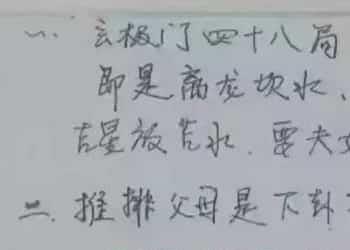 一、玄极门四十八局
即是离龙坎水、
吉星放吉水.要夫
二.推排父母是下卦